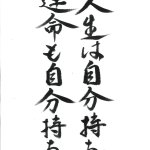 人生は自分持ち
運命も自分持ち